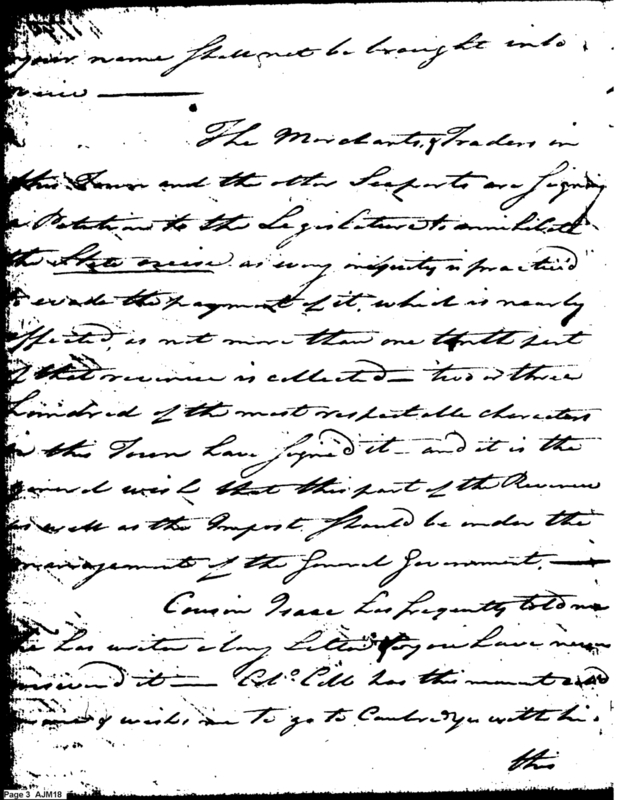 your name shall not be brought into
view —
The Merchants, & Traders in
this Town and the other Seaports are signing
a Petition to the Legislature to annihilate
the State excise as every iniquity is practic'd
to evade the payment of it, which is nearly
effected, as not more than one tenth part
of that revenue is collected — two or three
hundred of the most respectable characters
in this Town have sign'd it — and it is the
general wish that this part of the Revenue
as well as the Impost should be under the
management of the General Government. —
Cousin Isaac has frequently told me
he has writen a long Letter & you have never
answered it — Col.º Cobb has this moment
& wishes me to go to Cambridge with him
this
Page 3 AJM18